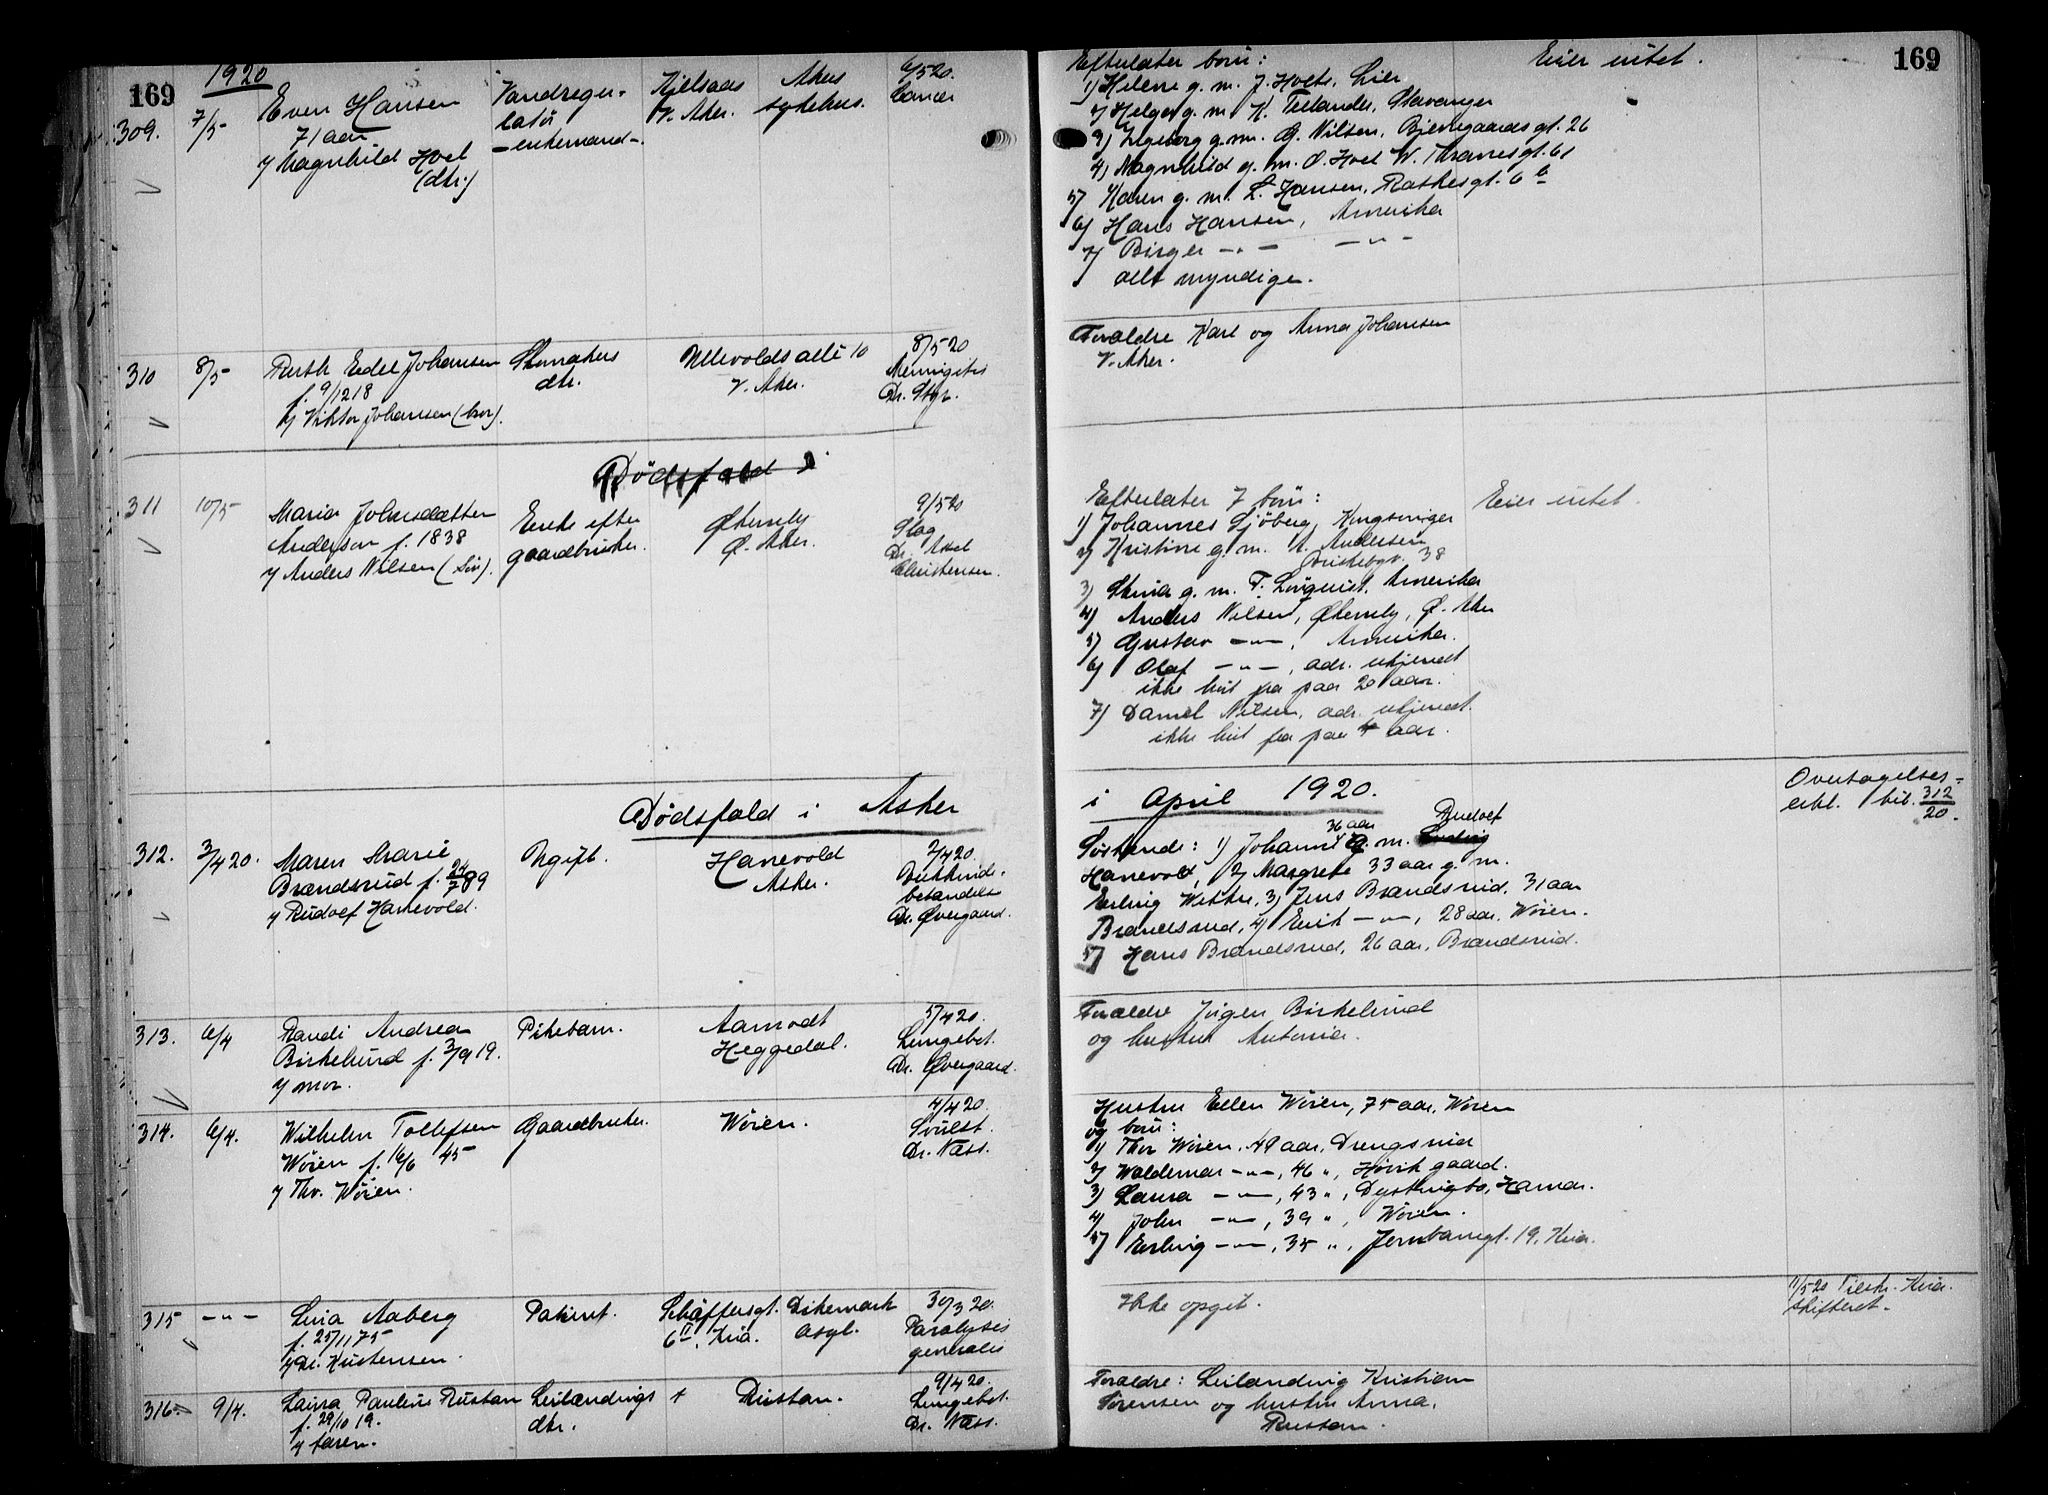 169
1920
309.
7/5
Even Hansen
71 aar
v/ Magnhild Hoel
(dtr.)
Vandregu-
latør
- enkemand -
Kjelsaas
V. Aker.
Akers
sykehus.
6/5 20.
Cancer
310
8/5
Ruth Edel Johansen
f. 9/12 18
v/ Viktor Johansen (bror).
Skomakers
dtr.
Ullevoldsalle 10
V. Aker.
8/5 20
Meningitis
Dødsfald i
311
10/5
Maria Johnsdatter
Anderson f. 1838
v/ Anders Nilsen (søn).
Enke efter
gaardbruker.
Økernby
Ø. Aker.
9/5 20
Slag
Dr. Axel
Christensen.
Dødsfald i Asker
312.
3/4 20.
Maren Marie
Brændsrud f. 24/7 89
v/ Rudolf Hanevold.
Ugift.
Hanevold
Asker.
2/4 20.
Bukhinde-
betændelse
Dr. Øvergaard.
313.
6/4
Randi Andrea
Birkelund f. 3/9 19.
v/ mor.
Pikebarn.
Aamodt
Heggedal.
5/4 20.
Lungebet.
Dr. Øvergaard.
314.
6/4.
Wilhelm Tollefsen
Wøien f. 16/6 45
v/ Thv. Wøien.
Gaardbruker.
Wøien.
4/4 20.
Svulst.
Dr. Næss.
315
- " -
Lina Aaberg
f. 25/11 75
v/ Dr. Kristensen.
Patient.
Schäffersgt.
6 II, Kria.
Dikemark
asyl.
30/3 20.
Paralysis
generalis
316.
9/4.
Laura Pauline Rustan
f. 29/10 19.
v/ faren.
Leilændings
dtr.
Rustan.
9/4 20.
Lungebet.
Dr. Næss.
169
Efterlater børn:
Eier intet.
1) Helene g. m. J. Holts, Lier
2) Helga g. m. K. Teilander, Stavanger
3) Ingeborg g. m. G. Nilsen, Bjerregaards gt. 26
4) Magnhild g. m. O. Hoel W. Thranes gt. 61
5) Karen g. m. L. Hansen, Rathkesgt. 6 b
6) Hans Hansen, Amerika
7) Birger - " - - " -
alle myndige.
Forældre Karl og Anna Johansen
V. Aker.
Efterlater 7 børn:
Eier intet.
1) Johannes Sjøberg, Kongsvinger
2) Kristine g. m. A. Andersen
38
3) Stina g. m. T. Lønquist, Amerika
4) Anders Nilsen, Økernby, Ø. Aker
5) Gustav - " -, Amerika.
6) Olaf - " -, adr. ukjendt
ikke hørt fra paa 20 aar.
7) Daniel Nilsen, adr. ukjendt.
ikke hørt fra paa 4 aar.
i April 1920.
Overtagelses-
erkl. bil. 312/20.
36 aar Rudolf
Søskende: 1) Johanne g. m.
Hanevold, 2) Margrete 33 aar g. m.
Erling Wettre, 3) Jens Brændsrud, 31 aar
Brændsrud, 4) Erik - " -, 28 aar. Wøien.
5) Hans Brændsrud, 26 aar, Brændsrud.
Forældre Jørgen Birkelund
og hustru Antonia.
Hustru Ellen Wøien, 75 aar, Wøien
og børn:
1) Thor Wøien, 49 aar, Drengsrud
2) Waldemar - " -, 46 ", Høvik gaard.
3) Laura - " -, 43 ", Dystingbo, Hamar.
4) John - " -, 39 ", Wøien.
5) Erling - " -, 35 ", Jernbanegt. 19, Kria.
Ikke opgit.
11/5 20 Tilskr. Kria.
skifteret.
Forældre: Leilænding Kristian
Sørensen og hustru Anna,
Rustan.